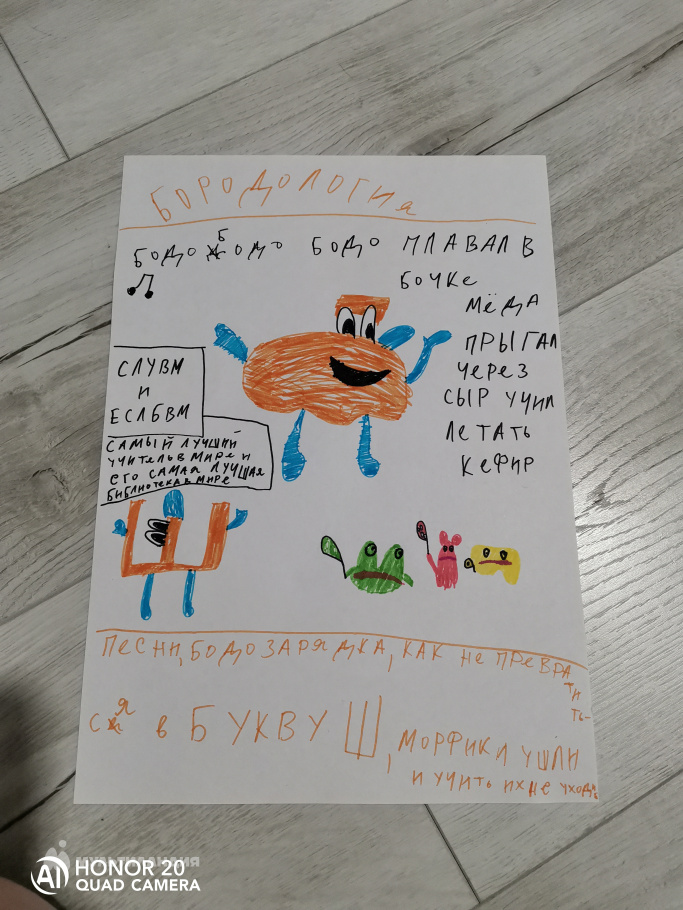 БОРОДОЛОГИЯ
БОДО БОДО БОДО ПЛАВАЛ В
БОЧКЕ
МЁДА
ПРЫГАЛ
ЧЕРЕЗ
СЫР УЧИЛ
ЛЕТАТЬ
КЕФИР
СЛУВМ
И
ЕСЛБВМ
САМЫЙ ЛУЧШИЙ
УЧИТЕЛЬ В МИРЕ И
ЕГО САМАЯ ЛУЧШАЯ
БИБЛИОТЕКА В МИРЕ
ПЕСНИ, БОДОЗАРЯДКА, КАК НЕ ПРЕВРА
ТИ
ТЬ-
СЯ В БУКВУ Ш, МОРФИКИ УШЛИ
И УЧИТЬ ИХ НЕ УХОДИ
МУЛЬТИЛАНДИЯ
HONOR 20
AI QUAD CAMERA